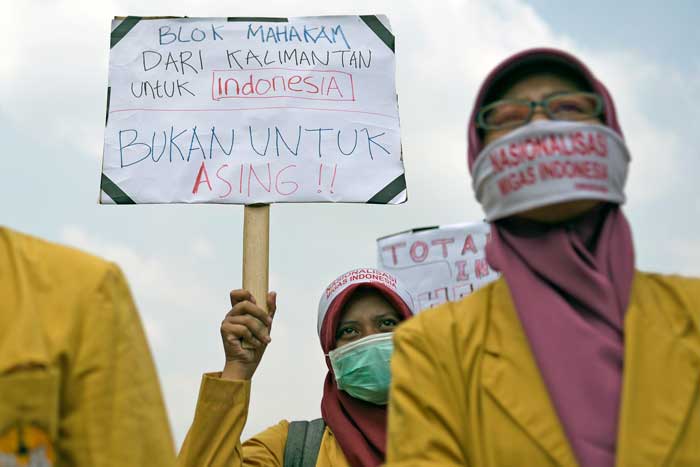 BLOK MAHAKAM
DARI KALIMANTAN
UNTUK INDONESIA
BUKAN UNTUK
ASING !!
NASIONALISASI
MIGAS INDONESIA
NASIONALISASI
MIGAS INDONESIA
TOTA
IN
HE